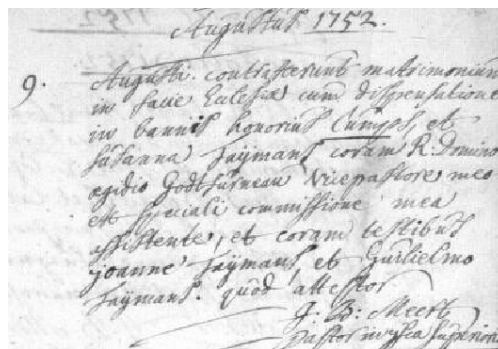 Augustus 1752.
9. Augusti contraxerunt matrimonium
in facie Ecclesiæ cum dispensatione
in bannis honorius Cumps, et
susanna Haÿmans coram R. Domino
egidio Godtfurneau Vicepastore meo
ex speciali commissione mea
assistente, et coram testibus
joanne Haÿmans, et Guilielmo
Haÿmans. quod attestor
J. B. Meert
pastor in superiori